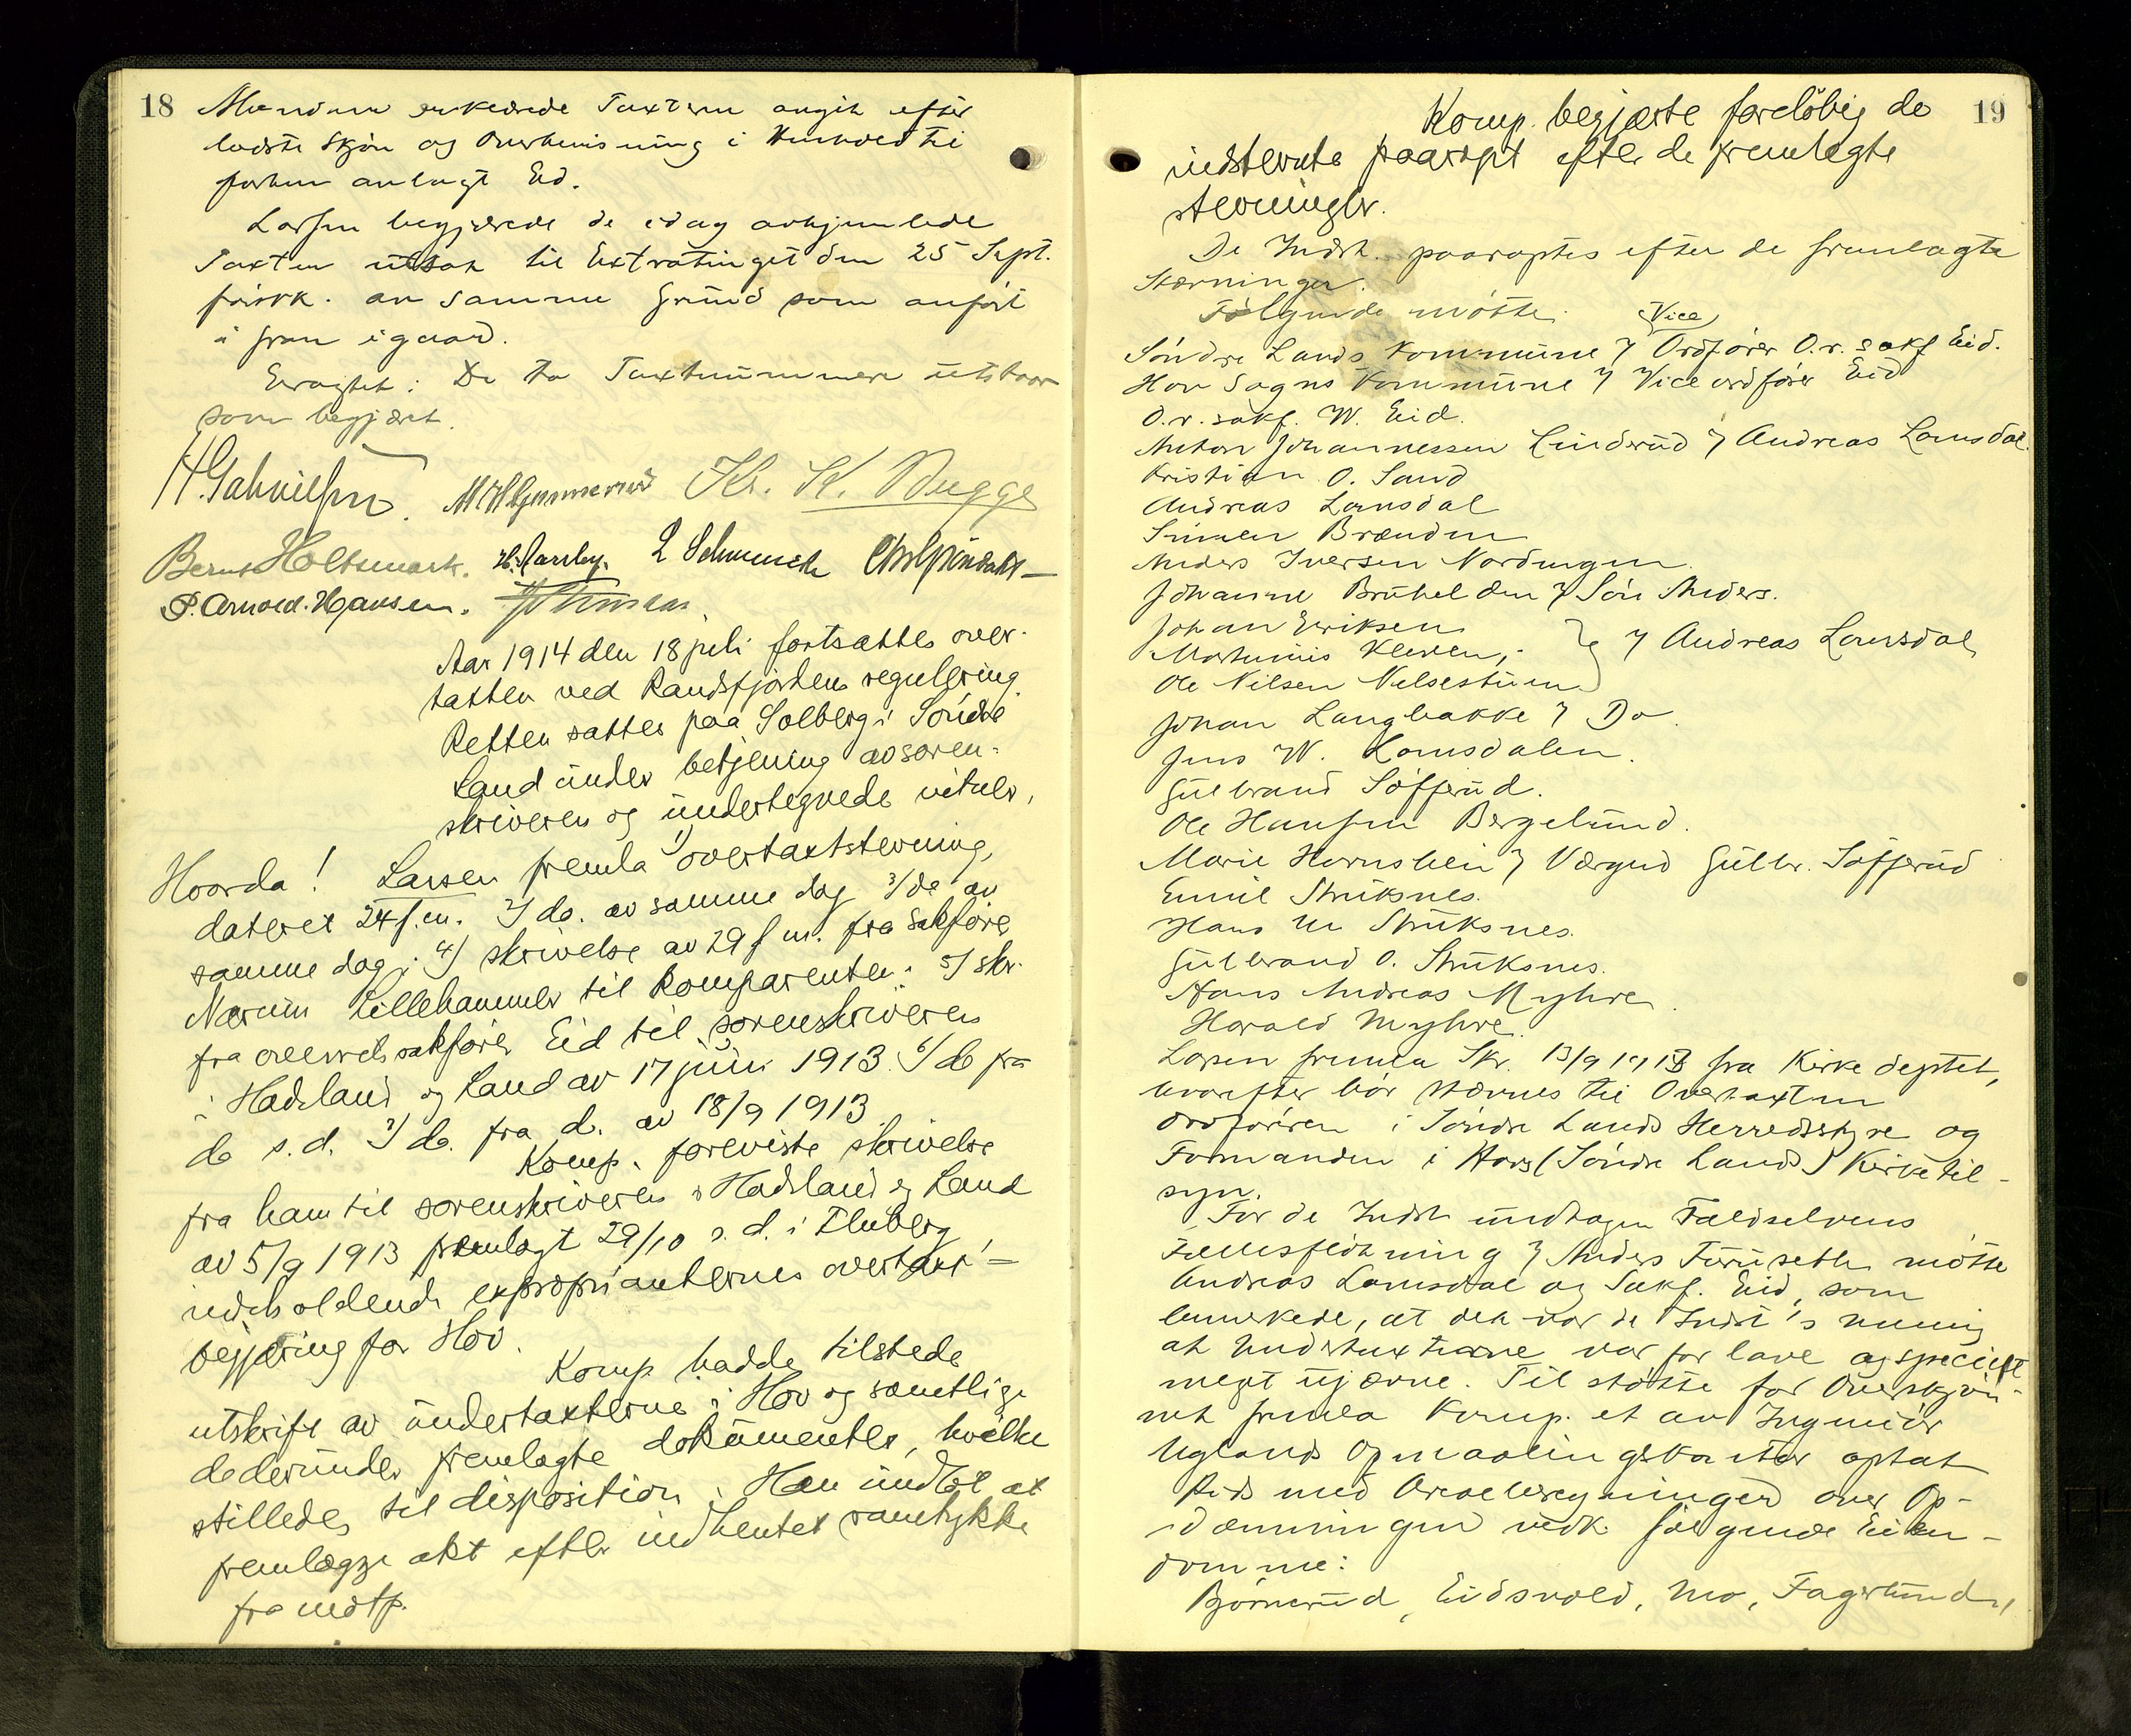 18
Mændene erklærede Taxterne avgit efter
bedste Skjøn og Overbevisning i Henhold til
forhen avlagt Ed.
Larsen begjærede de idag avhjemlede
Taxter utsat til Extratinget den 25 Sept.
førstk. av samme Grund som anført
i fran igaar.
Eragtet: De to Taxtnummere utstaar
som begjæret.
H. Gabrielsen. M H Gummerud Kr. K. Bugge
Bernt Holtsmark. H. Aarsby. L Schmueck
P. Arnold. Hansen.
Aar 1914 den 18 juli fortsattes over-
taxten ved Randsfjordens regulering.
Retten sattes paa Solberg i Søndre
Land under betjening av soren-
skriveren og undertegnede vitner,
Hvorda! Larsen fremla 1) overtaxtstevning,
dateret 24 f.m. 2) do. av samme dag 3) do av
samme dag; 4) skrivelse av 29 f m. fra Sakføre
Nærum Lillehammer til Komparenten. 5) skr.
fra overretssakfører Eid til sorenskriveren
i Hadeland og Land av 17 juni 1913. 6) do fra
do s.d. 7) do. fra do. av 18/9 1913
Komp. foreviste skrivelse
fra ham til sorenskriveren i Hadeland og Land
av 5/9 1913 fremlagt 29/10 s.d. i Fluberg
indeholdende expropriantenes overtaxt-
begjæring for Hov.
Komp hadde tilstede
utskrift av undertaxterne i Hov og samtlige
dederunder fremlagte dokumenter, hvilke
stilledes til disposition. Han undlot at
fremlægge akt efter indhentet samtykke
fra motp.
19
Komp. begjærte foreløbig de
indstevnte paaropt efter de fremlagte
stevninger.
De Indst. paaroptes efter de fremlagte
Stævninger.
Følgende møtte:
Vice
Søndre Lands Kommune ved Ordfører O.r. sakf Eid.
Hov Sogns Kommune ved Viceordfører Eid
O.r. sakf. W. Eid.
Anton Johannessen Linderud ved Andreas Lomsdal.
Kristian O. Sand
Andreas Lomsdal
Simen Brænden
Anders Iversen Nordengen.
Johanne Bruhelden ved Søn Anders.
Johan Eriksen
Martinius Kleven, ved Andreas Lomsdal
Ole Nilsen Nilsestuen
Johan Langbakke ved Do.
Jens W. Lomsdalen.
Gulbrand Søfferud.
Ole Hansen Bergelund.
Marie Hornslien ved Værgen Gulbr. Søfferud
Emil Struksnes.
Hans M Struksnes.
Gulbrand O. Struksnes.
Hans Andreas Myhre.
Harald Myhre.
Larsen fremla Skr. 13/9 1913 fra Kirkedeptet,
hvorefter bør stævnes til Overtaxten
Ordføreren i Søndre Lands Herredsstyre og
Formanden i Hovs (Søndre Lands) Kirketil-
syn.
For de Indst undtagen Faldselvens
Fællesfløtning ved Anders Furuseth møtte
Andreas Lomsdal og Sakf. Eid, som
bemerkede, at det var de Indst's mening
at Undertaxterne var for lave og specielt
meget ujævne. Til støtte for Overskjøn-
net fremla Komp. et av Ingeniør
Uglands Opmaalingskontor optat
Rids med Arealberegninger over Op-
dæmningen vedk. følgende Eien-
domme:
Bjørnerud, Eidsvold, Mo, Fagerlund,